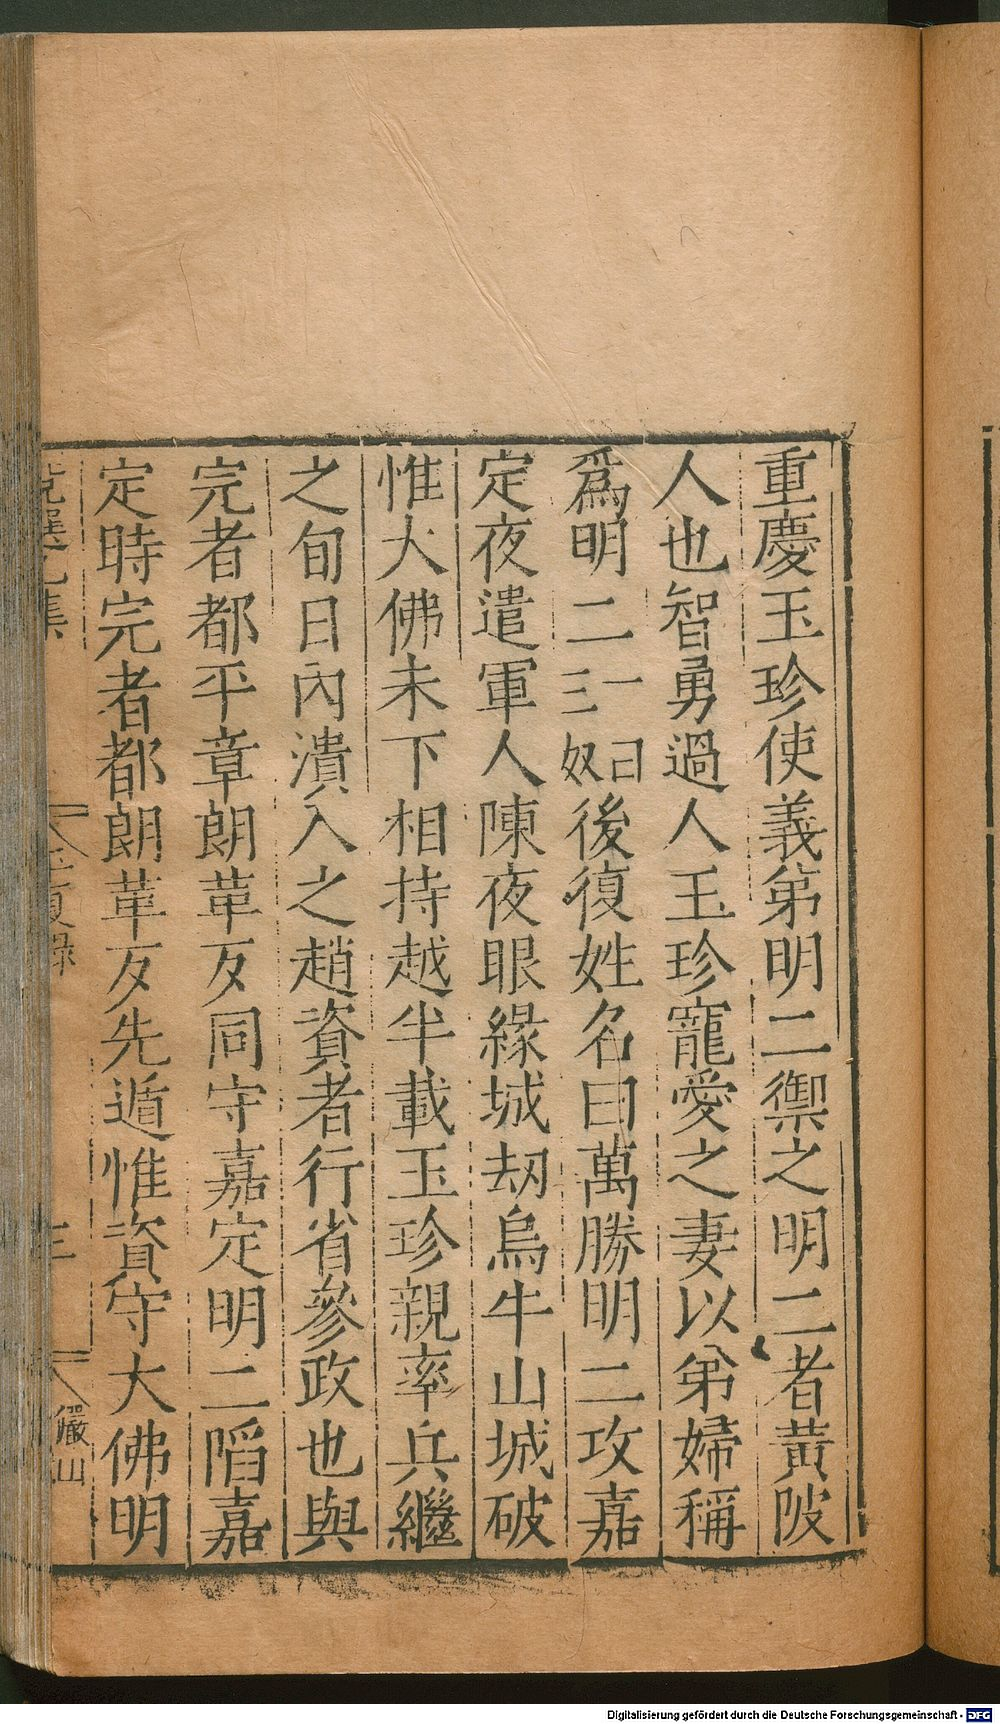 重慶玉珍使義第明二禦之明二者黃陂
人也智勇過人玉珍寵愛之妻以弟婦稱
爲明二一曰三奴後復姓名曰萬勝明二攻嘉
定夜遣軍人陳夜眼緣城刼烏牛山城破
惟大佛未下相持越半載玉珍親率兵繼
之旬日內潰入之趙資者行省參政也與
完者都平章朗革歹同守嘉定明二陷嘉
定時完者都朗革歹先遁惟資守大佛明
三
儼山
Digitalisierung gefördert durch die Deutsche Forschungsgemeinschaft - DFG